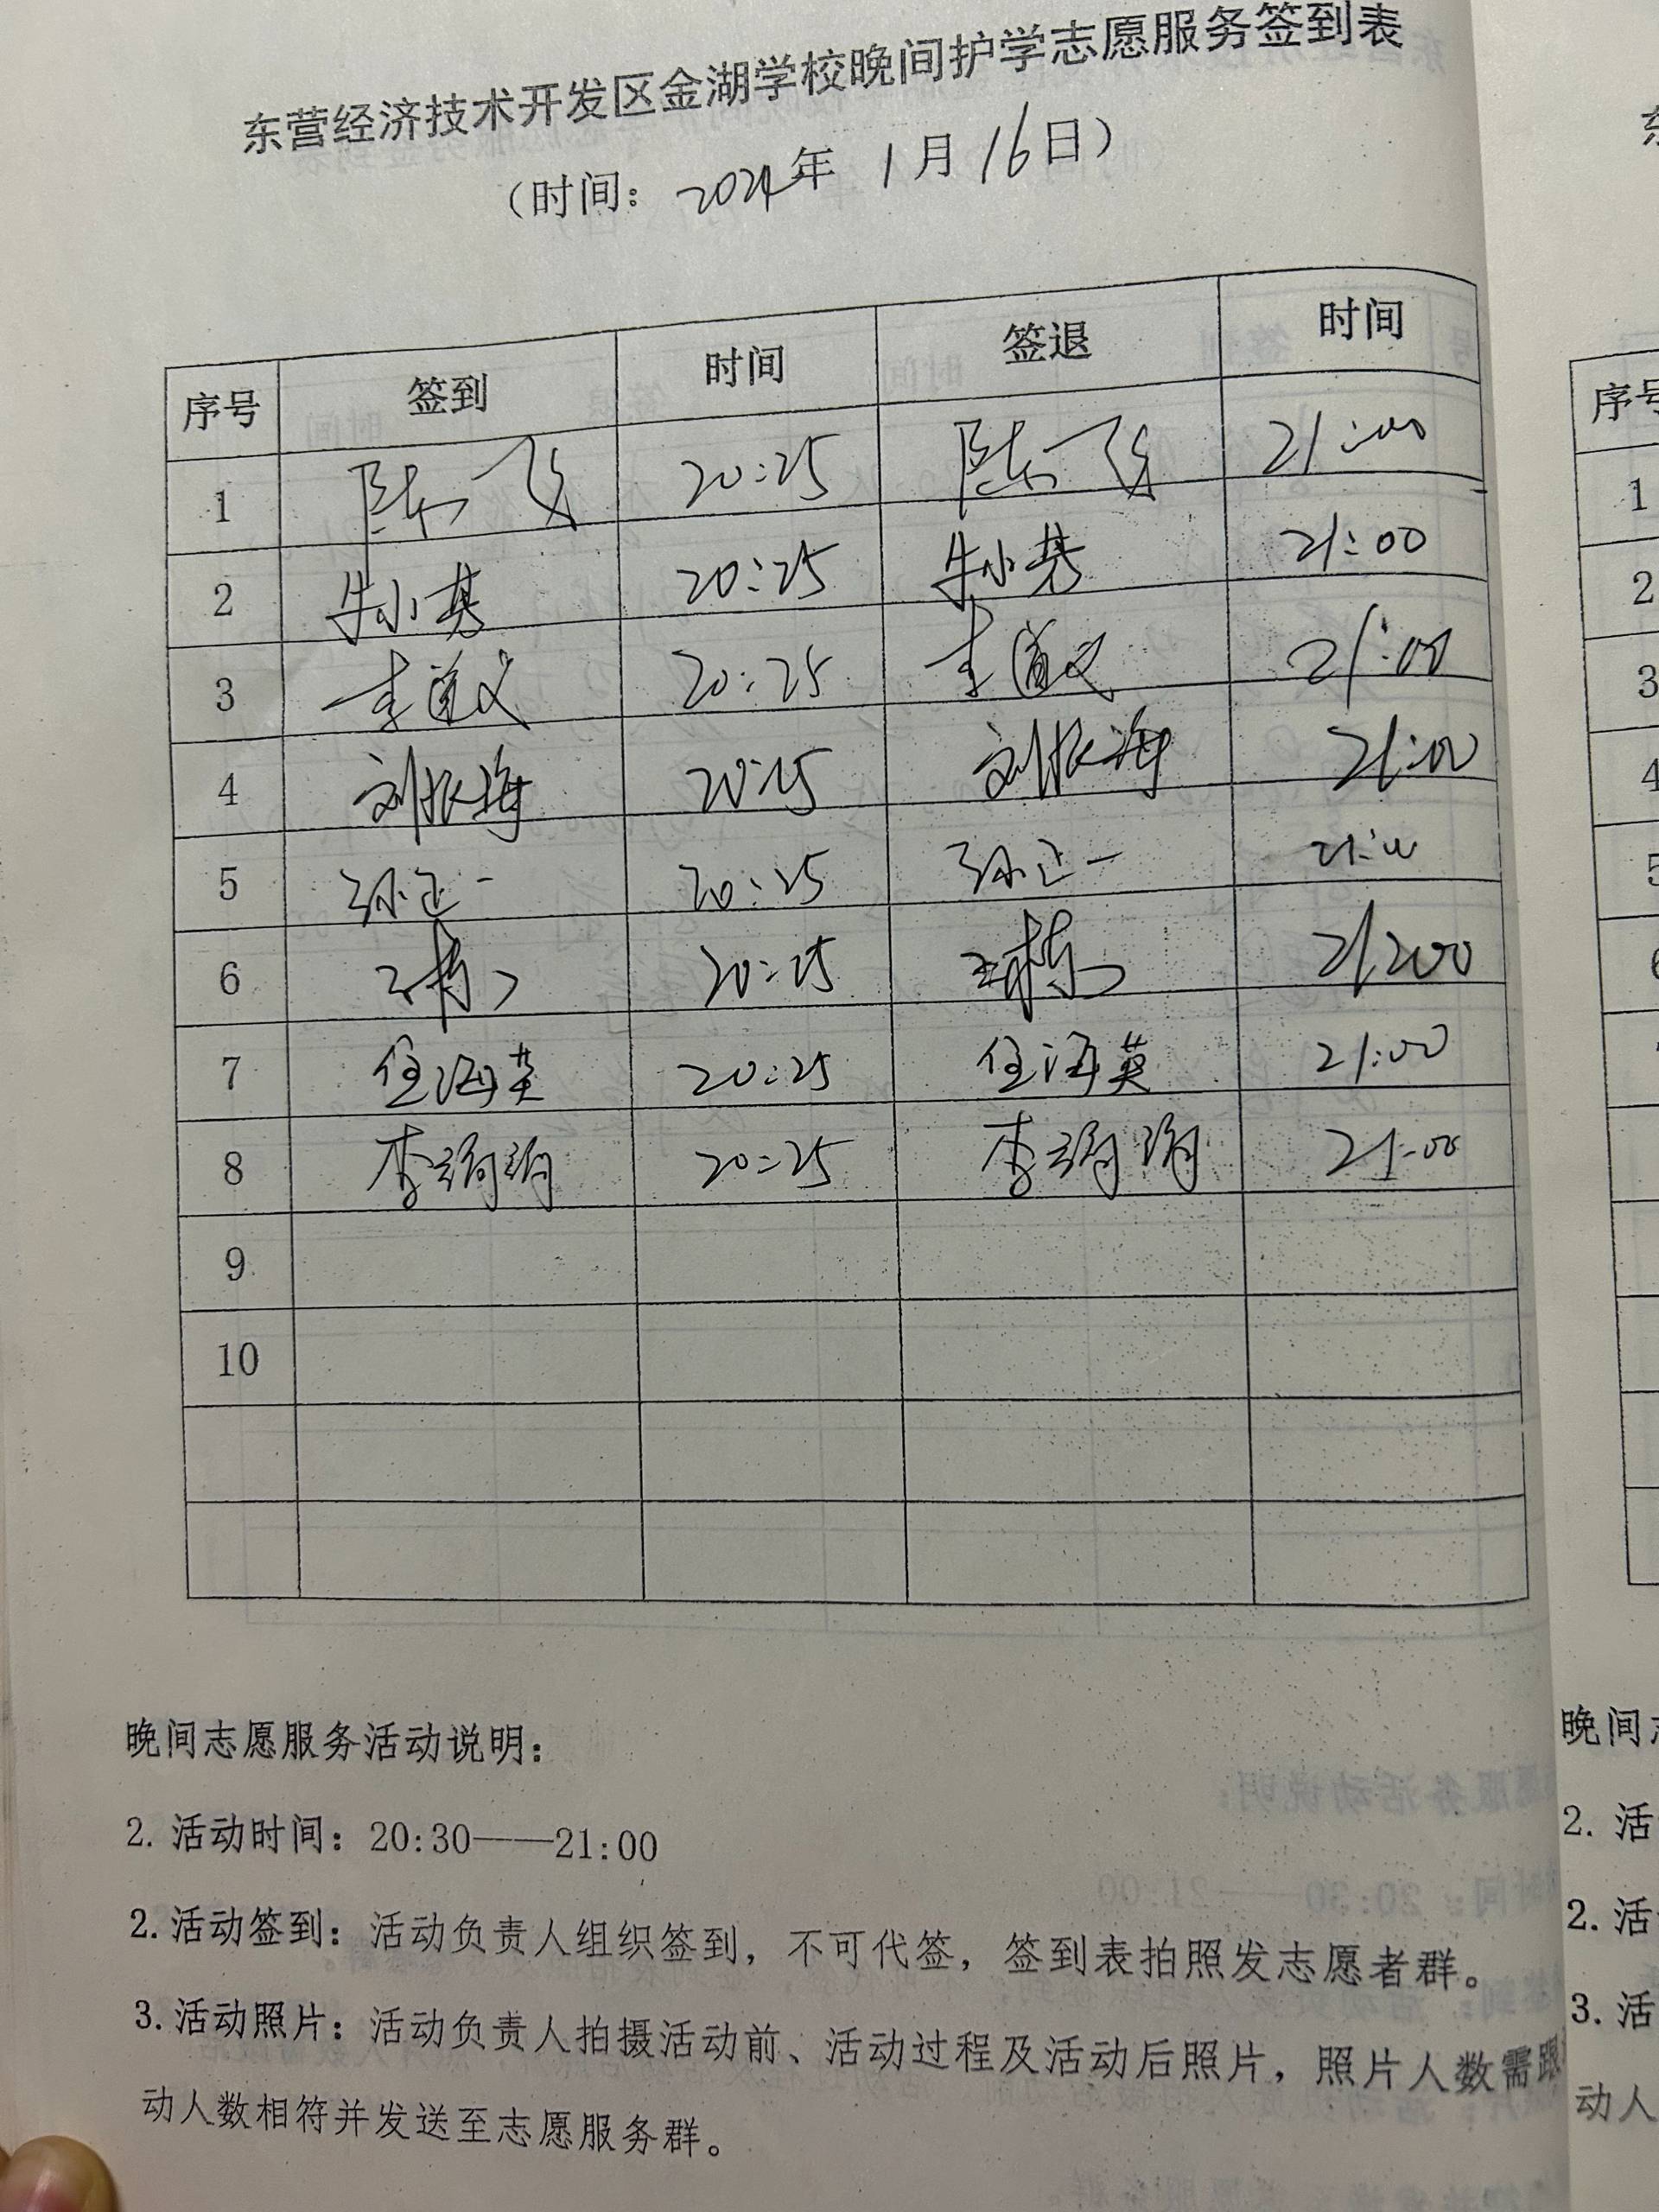 东营经济技术开发区金湖学校晚间护学志愿服务签到表
（时间：2024年 1月16日）
序号 签到 时间 签退 时间
1 陈飞 20:25 陈飞 21:00
2 朱小芳 20:25 朱小芳 21:00
3 李道义 20:25 李道义 21:00
4 刘振海 20:25 刘振海 21:00
5 孙正一 20:25 孙正一 21:00
6 20:25 21:00
7 任海英 20:25 任海英 21:00
8 李绢绢 20:25 李绢绢 21:00
9
10
晚间志愿服务活动说明：
2. 活动时间：20:30——21:00
2. 活动签到：活动负责人组织签到，不可代签，签到表拍照发志愿者群。
3. 活动照片：活动负责人拍摄活动前、活动过程及活动后照片，照片人数需跟
动人数相符并发送至志愿服务群。
序号
1
2
3
4
5
6
晚间
2. 活
2. 活
3. 活
动人